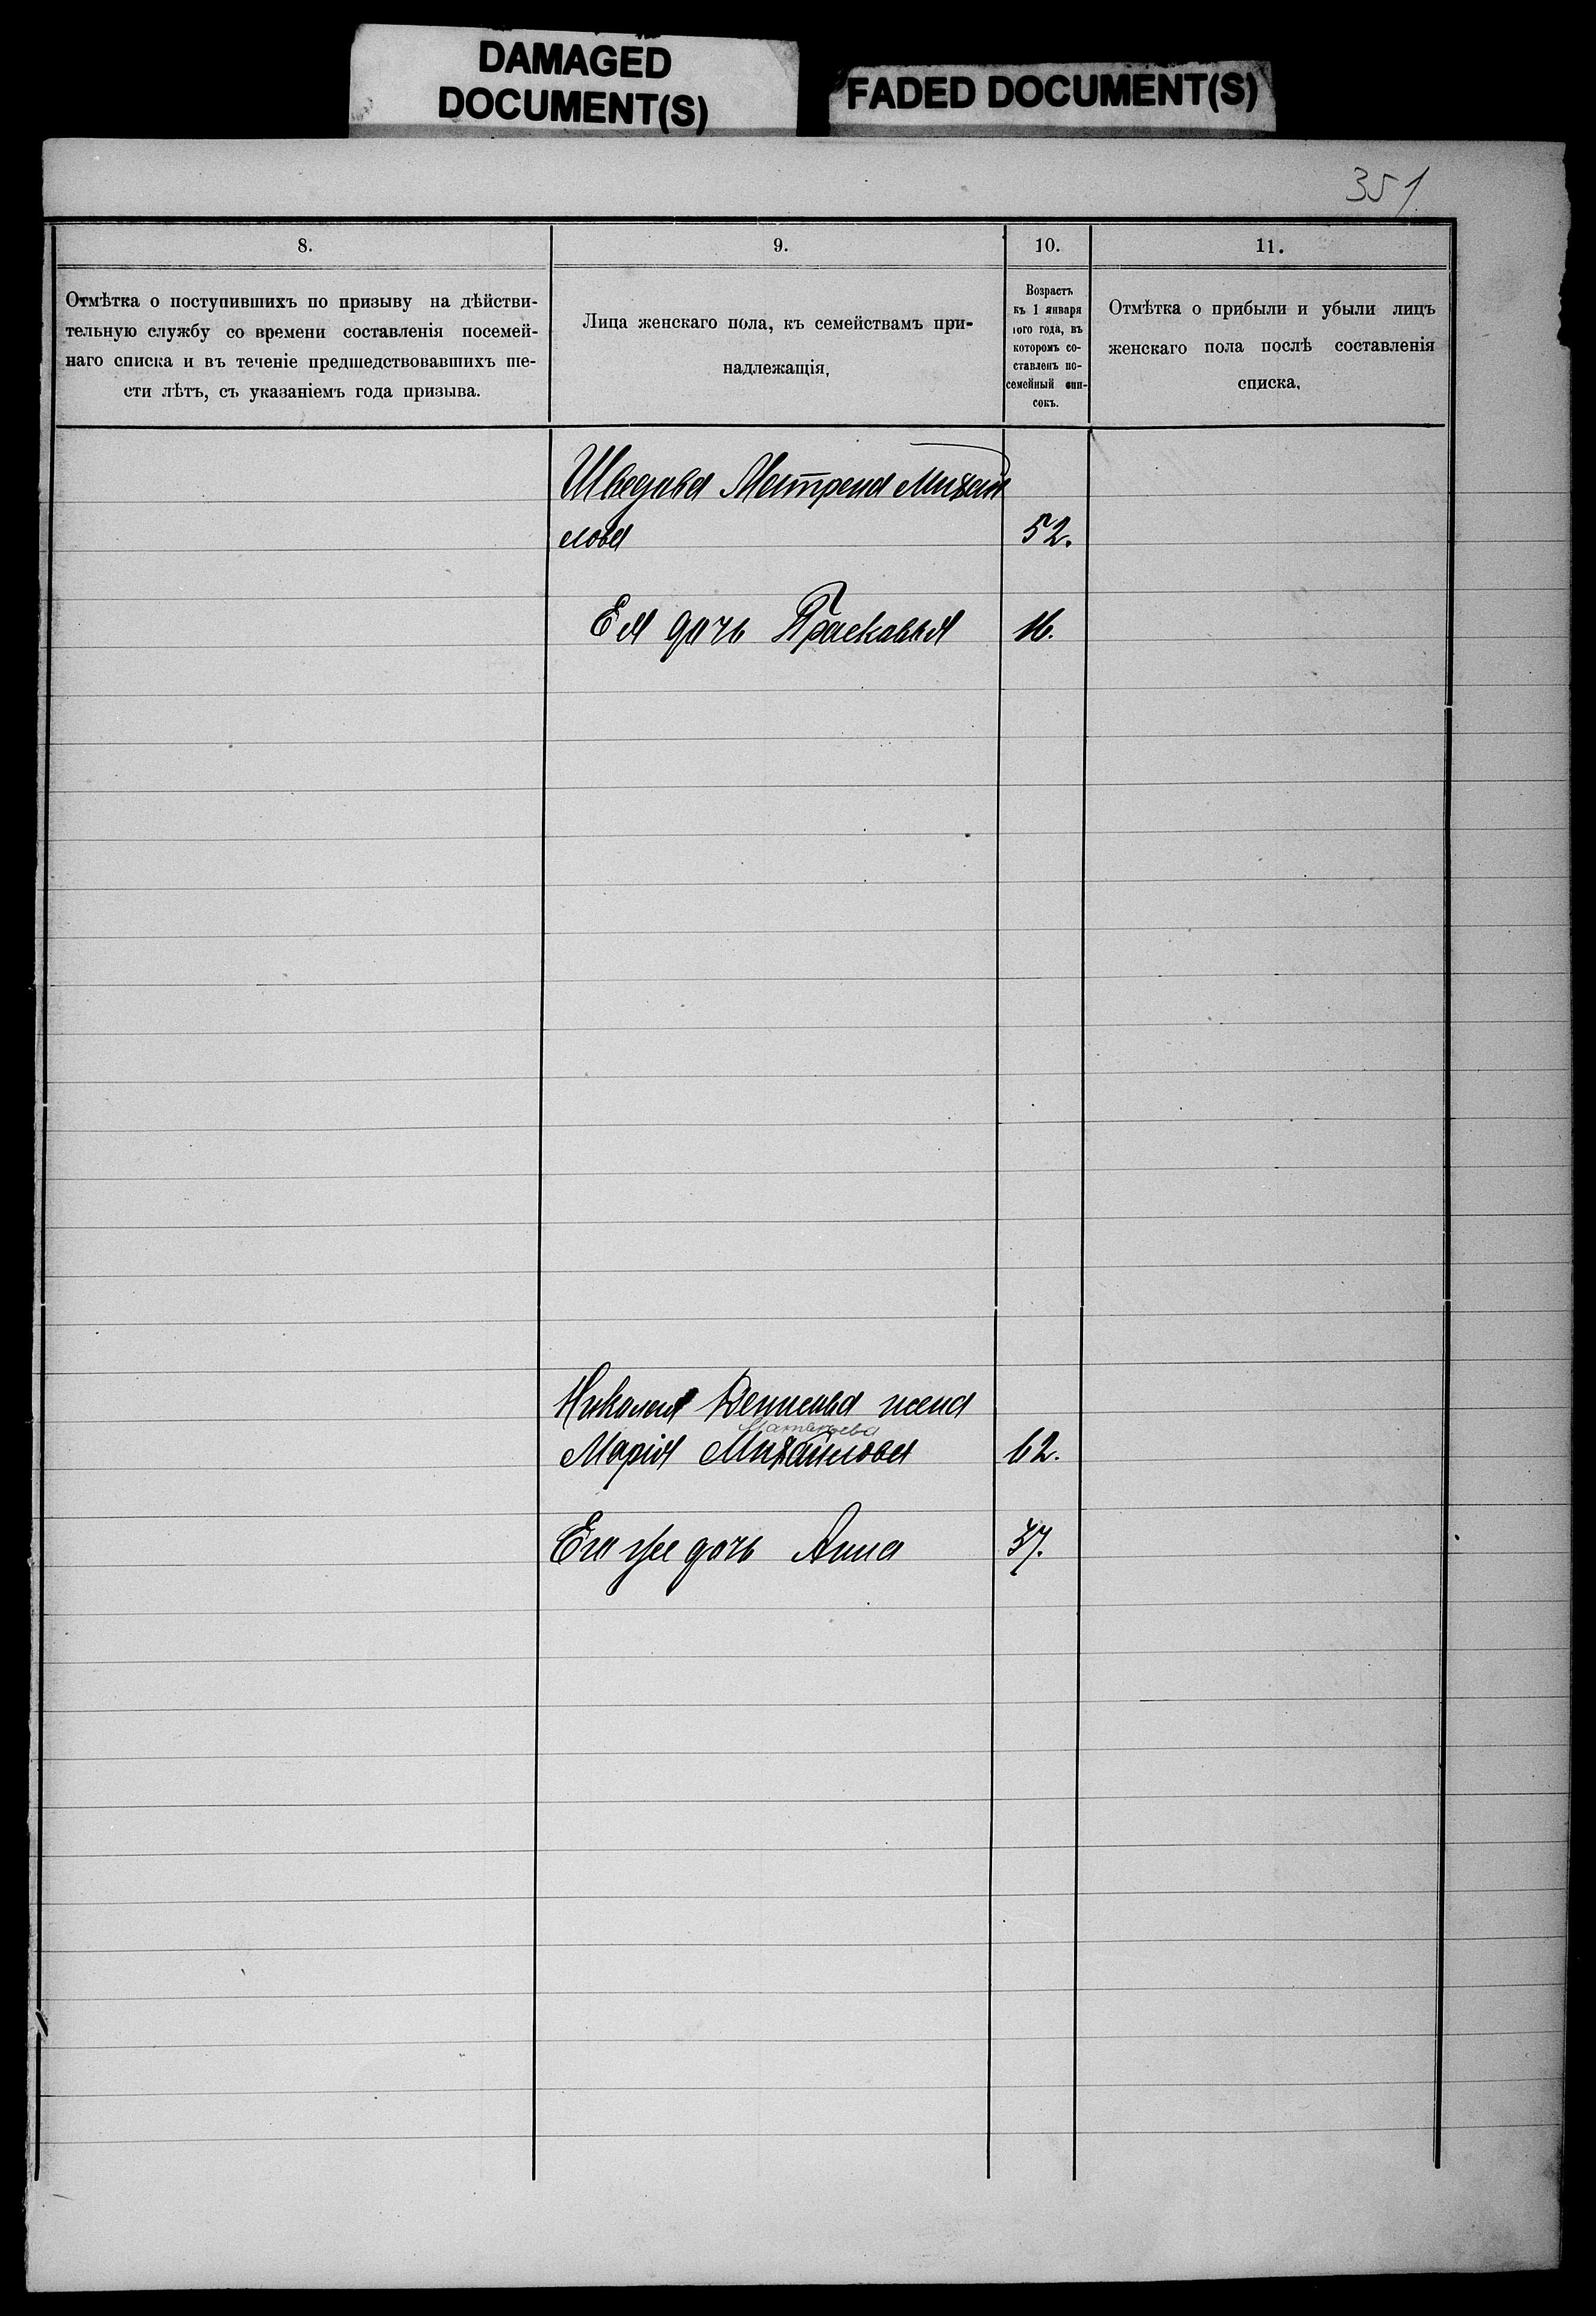 DAMAGED
DOCUMENT(S)
FADED DOCUMENT(S)
351
8.
9.
10.
11.
Отмѣтка о поступившихъ по призыву на дѣйстви-
тельную службу со времени составленія посемей-
наго списка и въ теченіе предшедствовавшихъ ше-
сти лѣтъ, съ указаніемъ года призыва.
Лица женскаго пола, къ семействамъ при-
надлежащія,
Возрастъ
къ 1 января
того года, въ
которомъ со-
ставленъ по-
семейный спи-
сокъ.
Отмѣтка о прибыли и убыли лицъ
женскаго пола послѣ составленія
списка.
Шведова Матрена Михай
лова 52.
Ея дочь Прасковья 16.
Николая Денисова жена
Матвѣева
Марія Михайлова 62.
Его же дочь Анна 37.